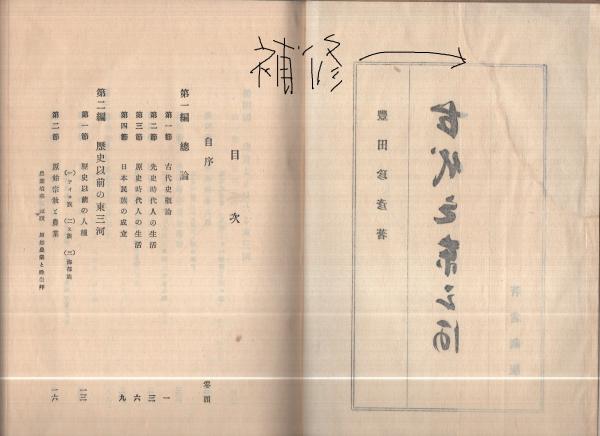 補修
古代之東三河
豊田珍彦著
目次
自序 巻頭
第一編 總論
第一節 古代史概論 一
第二節 先史時代人の生活 三
第三節 原史時代人の生活 六
第四節 日本民族の成立 九
第二編 歷史以前の東三河
第一節 歷史以前の人種 一三
(一)アイヌ族 (二)
第二節 原始宗敎と農業 一六